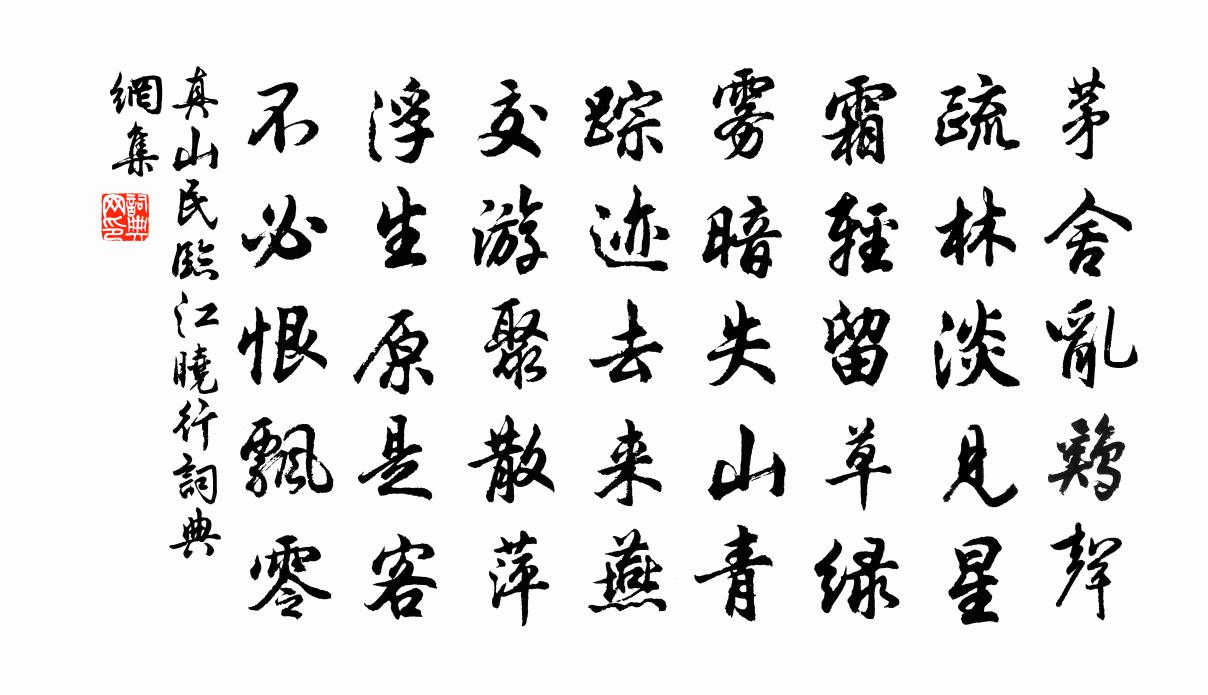 茅舍亂鷄聲
疏林淡見星
霜輕留草緑
雾暗失山青
踪迹去来燕
交游聚散萍
浮生原是客
不必恨飄零
真山民臨江曉行詞典
網集
詞典
网印